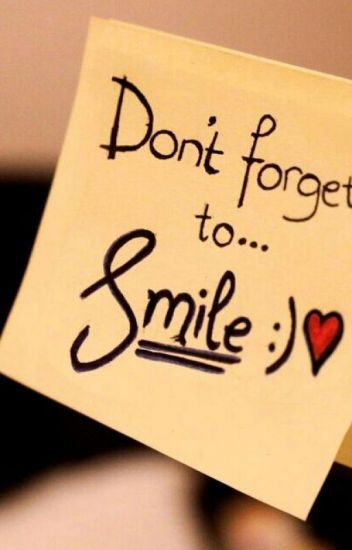 Don't forget
to...
Smile :)